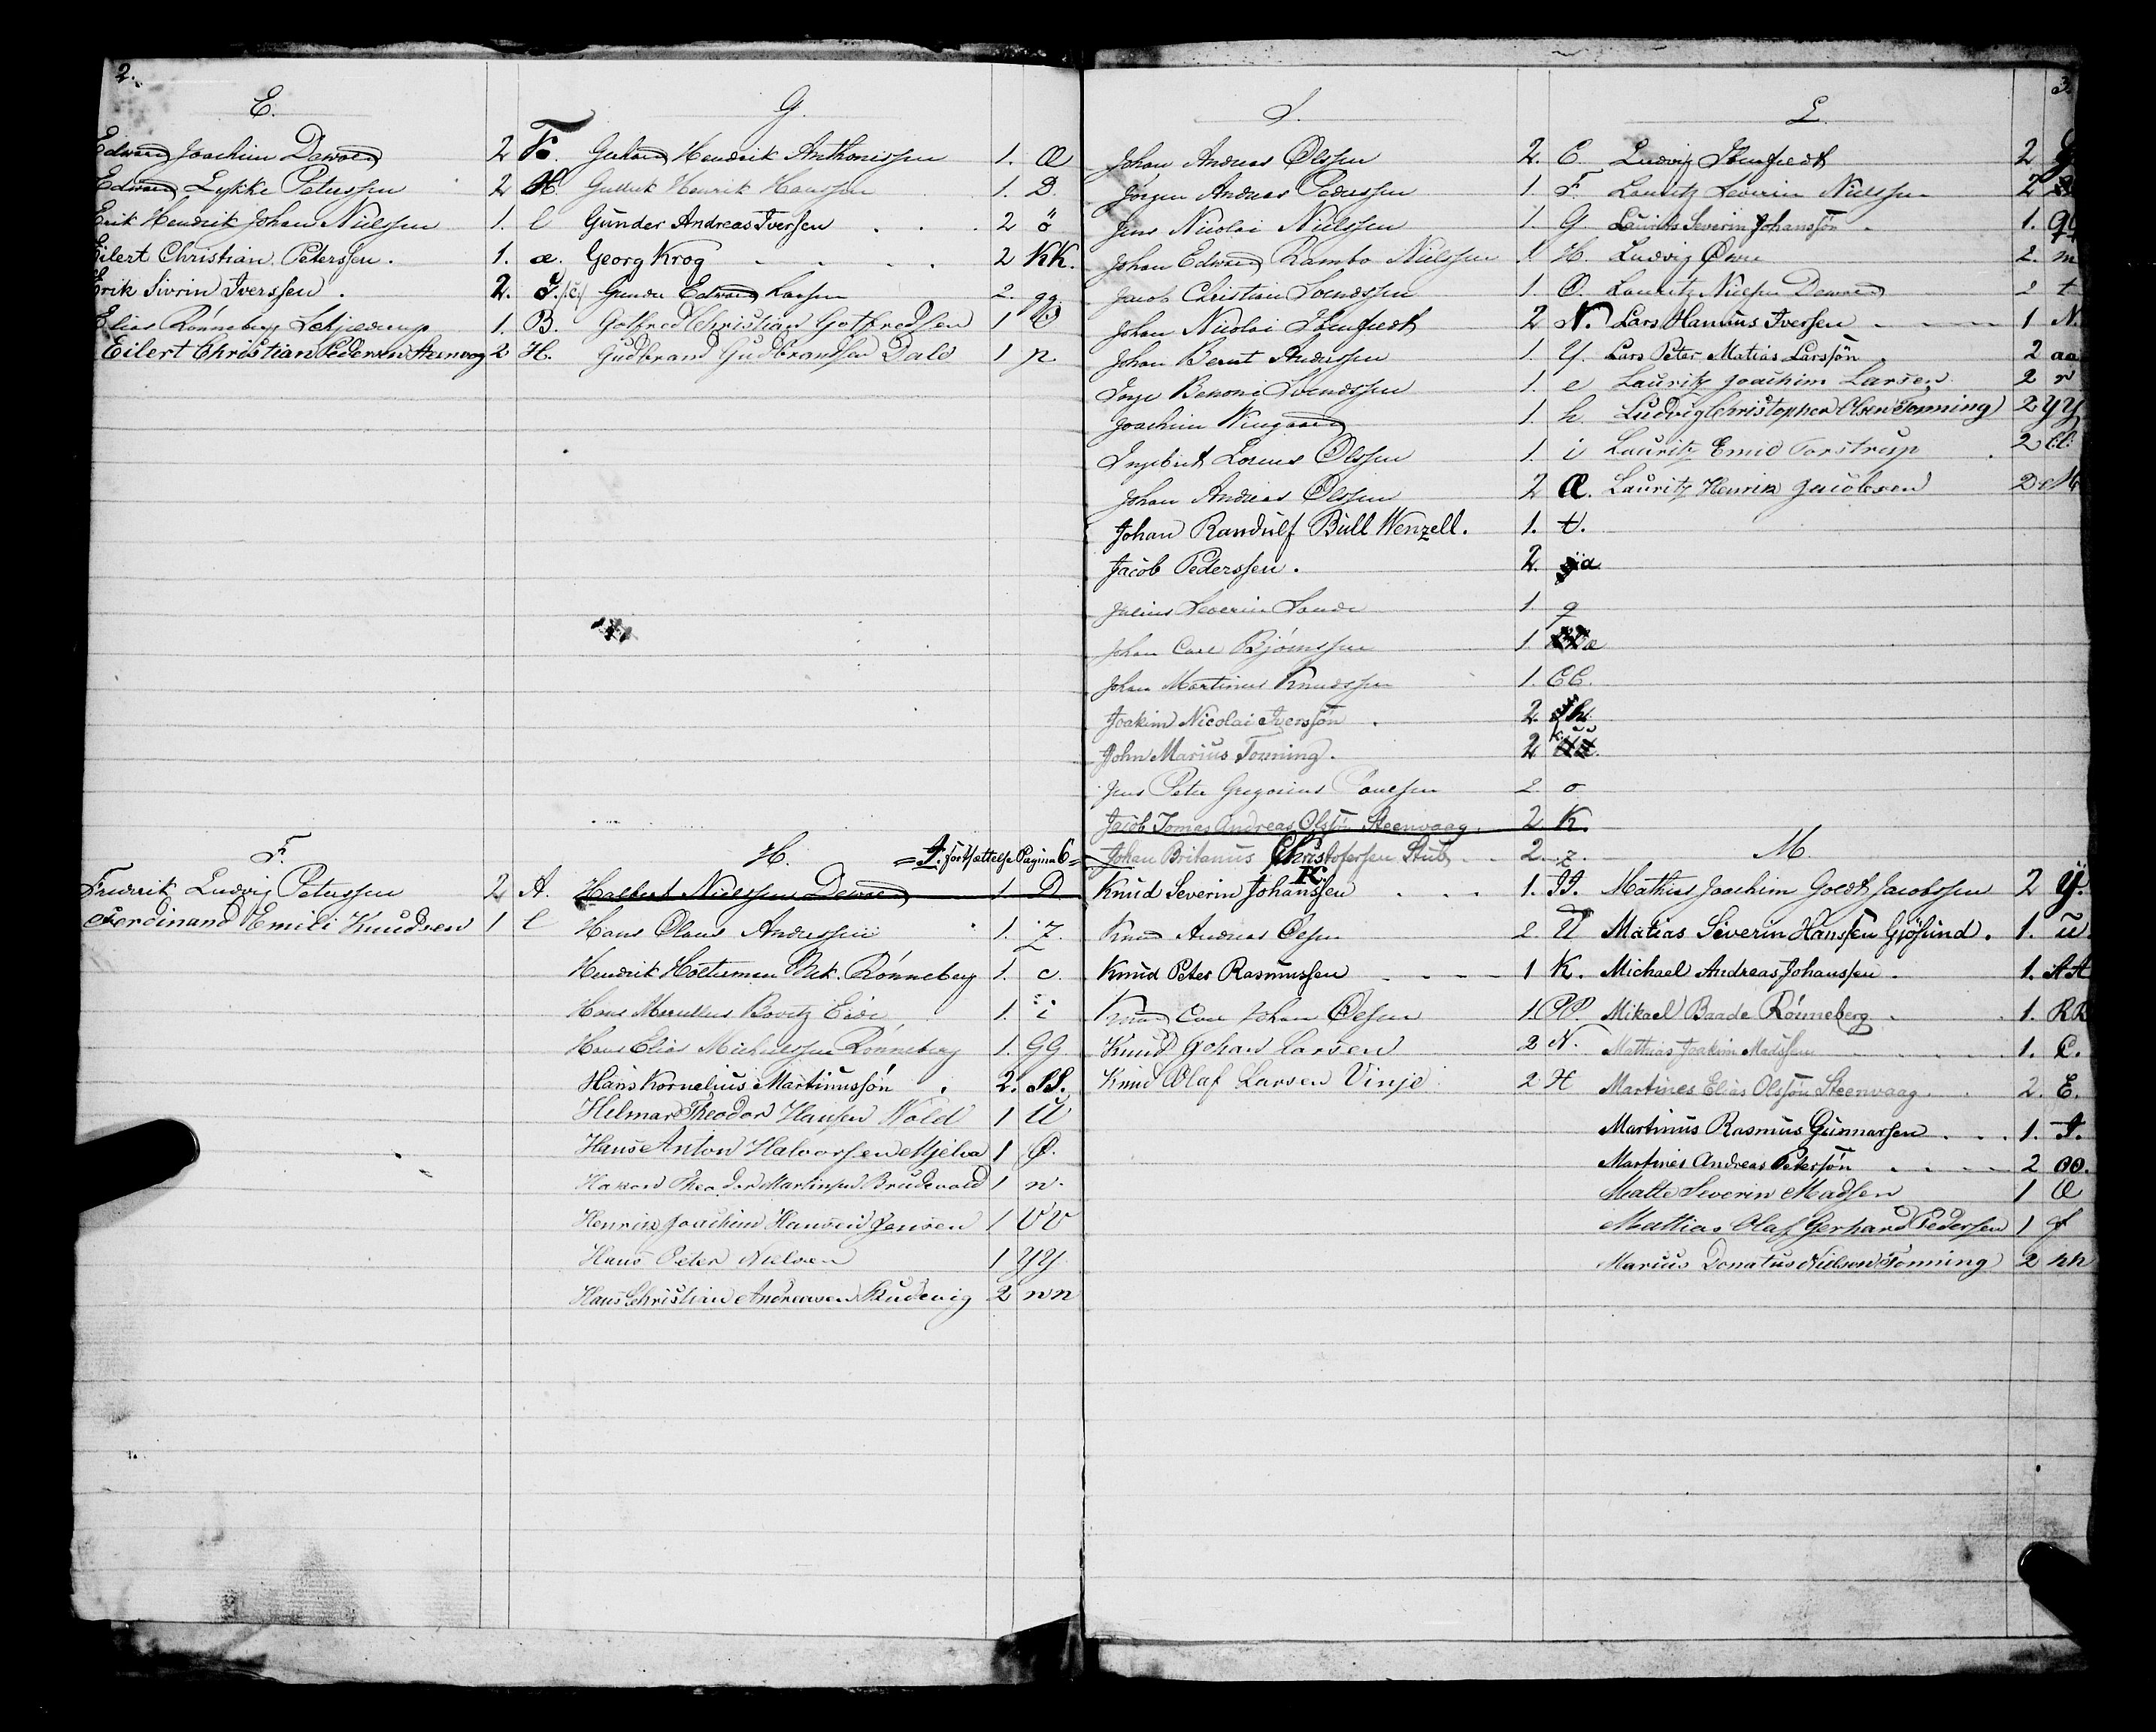 2.
E.
Edward Joachim Dawaed 2 F.
Edward Lykke Peterssen 2 H.
Erik Hendrik Johan Nielssen 1. l
Eilert Christian Peterssen. 1. æ.
Erik Sivrin Iverssen. 2. I./c/
Elias Rønneberg Schjedrup 1. B.
Eilert Christian Pedersen Stenvaag 2 H.
F.
Fredrik Ludvig Peterssen 2 A.
Ferdinand Emili Knudsen 1 l
G.
Gerhard Hendrik Anthonissen 1. Æ
Gullik Henrik Hanssen 1. D
Gunder Andreas Iversen 2 ö
Georg Krog 2 KK.
Gunder Edward Larsen 2. gg.
Gotfred Christian Gotfredsen 1
Gudbrand Gudbrandsen Dale 1 p
H. = I. fortsættelse Pagina 6 =
Halbert Nielssen Dewaed 1. D
Hans Olaus Anderssen 1. Z.
Hendrik Holterman Bek. Rønneberg 1. c.
Hans Marellus Bovitz Eide 1. i
Hans Elias Michelssen Rønneberg 1. GG
Hans Kornelius Martinussön 2. SS.
Hilmar Theodor Hansen Wold 1 U
Hans Anton Halvorsen Mjelva 1 Ø.
Hakon Theodor Martinsen Brudevold 1 n.
Henrik Joachim Hansen Jensen 1 VV
Hans Peter Nielsen 1 YY
Hans Christian Andreassen Fludevig 2 nn
3.
I.
Johan Andreas Olssen 2. C.
Jörgen Andreas Pederssen 1. F.
Jens Nicolai Nielssen 1. G.
Johan Edward Rambo Nielssen 1 H.
Jacob Christian Svendssen 1. O.
Johan Nicolai Ibenfeldt 2 N.
Johan Bernt Anderssen 1. Y.
Inge Benoni Svendssen 1. e
Joachim Kiugaard 1. h.
Ingebrit Lorens Olssen 1. i
Johan Andreas Olssen 2 Æ.
Johan Randulf Bull Wenzell. 1. t.
Jacob Pederssen. 2. a
Julius Severin Sande 1. q
Johan Carl Bjørnssen 1. æ
Johan Martinus Knudssen 1. CC.
Joakim Nicolai Iverssön. 2. h
John Marius Tonning. 2 k
Jens Peter Gregorius Paulsen 2 o
Jacob Tomas Andreas Olssön Steenvaag. 2. K.
Johan Britanus Christofersen Stub 2. z.
K.
Knud Severin Johanssen 1. II.
Knud Andreas Olsen 2. U
Knud Peter Rasmussen 1 K.
Knud Carl Johan Olsen 1. PP.
Knud Johan Larsen 2 N.
Knud Olaf Larsen Vinje 2 H
L.
Ludvig Ibenfeldt 2 G
Lauritz Severin Nielssen 2
Laurits Severin Johanssön. 1. qq
Ludvig Øwre 2. m
Lauritz Nielsen Dewaed 2 t
Lars Hannus Iversen 1 N.
Lars Peter Matias Larssön 2 aa
Lauritz Joachim Larsen 2 r
Ludvig Christopher Olsen Tonning 2 YY
Lauritz Emil Torstrup 2 Cl.
Lauritz Henrik Jacobsen 2
M
Mathias Joachim Goldt Jacobssen 2 Y.
Matias Severin Hanssen Gjøsund. 1. u.
Michael Andreas Johanssen. 1. AA
Mikael Baade Rönneberg 1. RR
Mathias Joakim Madssen 1. C.
Martines Elias Olssön Steenvaag. 2. E.
Martinus Rasmus Gunnarsen 1. I.
Martines Andreas Peterssön 2 oo.
Malte Severin Madsen 1 Æ
Mathias Olaf Gerhard Pedersen 1 f
Marius Donatus Nielsen Tonning 2 hh